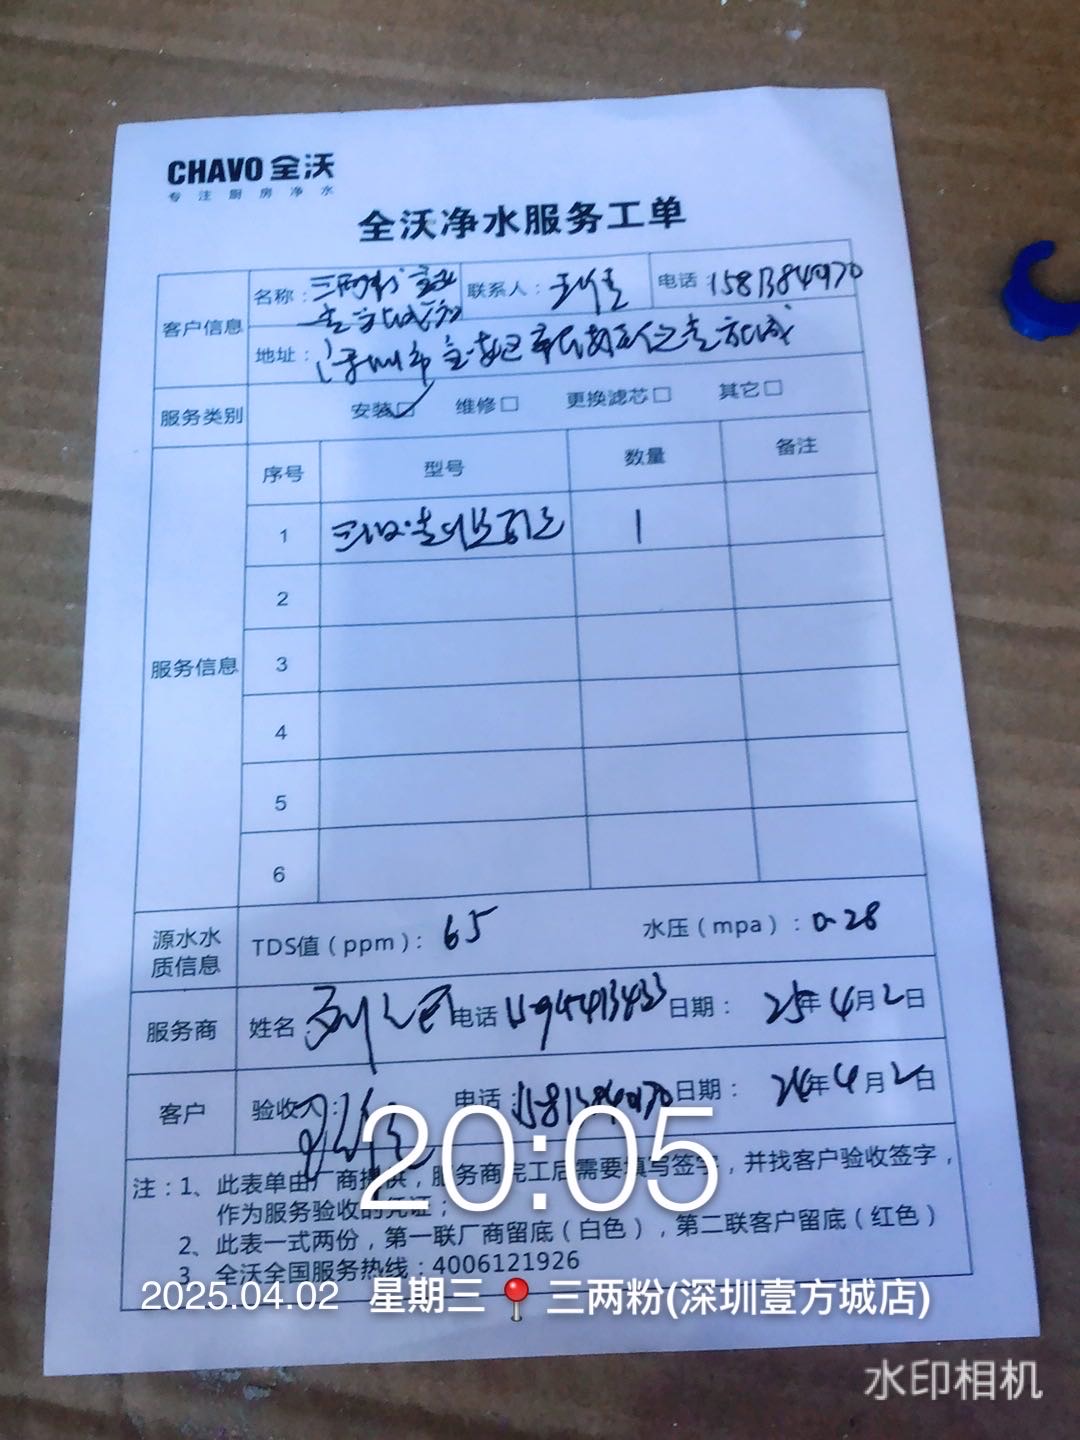 CHAVO 全沃
专注厨房净水
全沃净水服务工单
客户信息 名称：三两粉 宝安 壹方城店 联系人： 电话
地址：深圳市宝安区 壹方城
服务类别 安装☑ 维修□ 更换滤芯□ 其它□
服务信息 序号 型号 数量 备注
1 1
2
3
4
5
6
源水水质信息 TDS值（ppm）：65 水压（mpa）：0.28
服务商 姓名： 电话 日期：25年4月2日
客户 验收人： 电话： 日期： 年4月2日
20:05
注：1、此表单由厂商提供，服务商完工后需要填写签字，并找客户验收签字，
作为服务验收的凭证；
2、此表一式两份，第一联厂商留底（白色），第二联客户留底（红色）
3、全沃全国服务热线：4006121926
2025.04.02 星期三 三两粉(深圳壹方城店)
水印相机